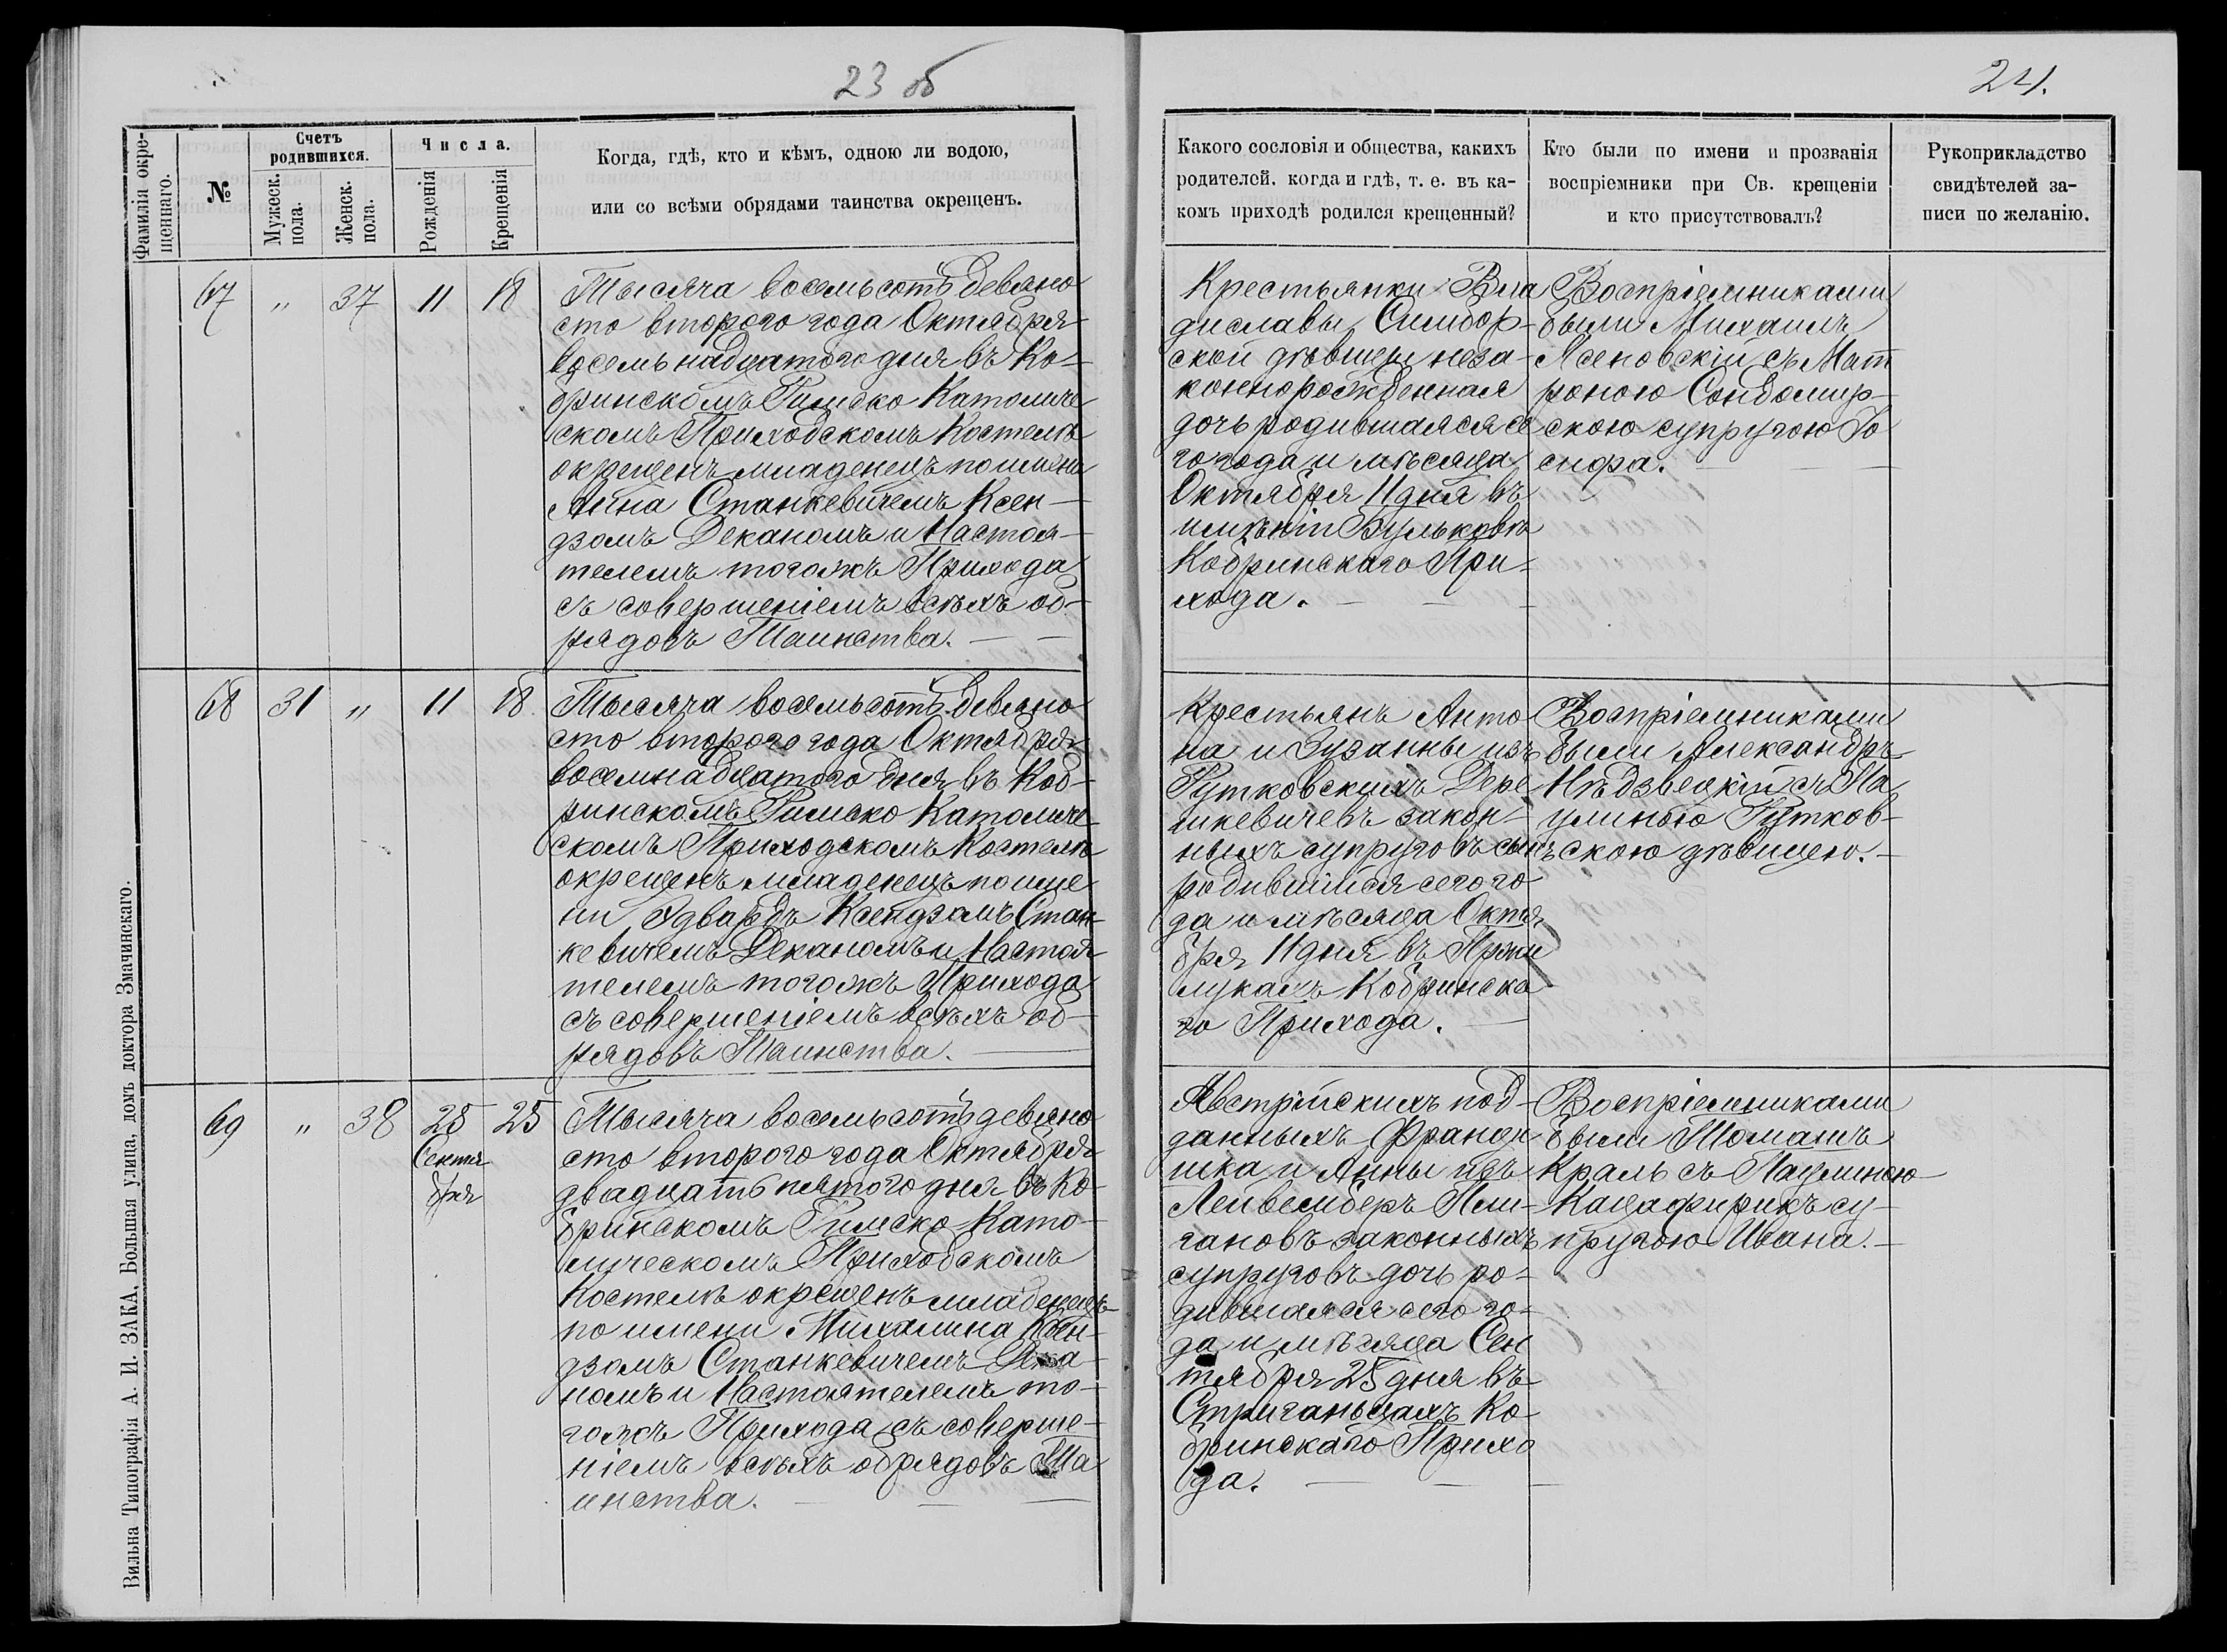 23 об
24.
Фамилія окре-
щеннаго.
№
Счетъ
родившихся.
Мужеск.
пола.
Женск.
пола.
Числа.
Рожденія
Крещенія
Когда, гдѣ, кто и кѣмъ, одною ли водою,
или со всѣми обрядами таинства окрещенъ.
Какого сословія и общества, какихъ
родителей. когда и гдѣ, т. е. въ ка-
комъ приходѣ родился крещенный?
Кто были по имени и прозванія
воспріемники при Св. крещеніи
и кто присутствовалъ?
Рукоприкладство
свидѣтелей за-
писи по желанію.
67 " 37 11 18
Тысяча восемьсотъ девяно
сто второго года Октября
восемьнадцатого дня въ Ко-
бринскомъ Римско Католиче
скомъ Приходскомъ Костелѣ
окрещенъ младенецъ по имени
Анна Станкевичемъ Ксен-
дзомъ Деканомъ и Настоя-
телемъ тогожъ Прихода
съ совершеніемъ всѣхъ об-
рядовъ Таинства.
Крестьянки Вла
диславы
ской дѣвицы неза-
коннорожденная
дочь родившаяся се
го года и мѣсяца
Октября 11 дня въ
имѣніи Вульковѣ
Кобринскаго При-
хода.
Воспріемниками
были Михаилъ
Ясеновскій съ Мат
роною Сандомир-
скою супругою Іо
сифа.
68 31 " 11 18.
Тысяча восемьсотъ девяно
сто второго года Октября
восемнадцатого дня въ Коб-
ринскомъ Римско Католиче
скомъ Приходскомъ Костелѣ
окрещенъ младенецъ по име
ни Эдвардъ Ксендзомъ Стан-
кевичемъ Деканомъ и Настоя-
телемъ тогожъ Прихода
съ совершеніемъ всѣхъ об-
рядовъ Таинства.
Крестьянъ Анто-
на и Зузанны изъ
Рутковскихъ Дере
шкевичевъ закон-
ныхъ супруговъ сынъ
родившійся сего го
да и мѣсяца Октя
бря 11 дня въ Пржи
лукахъ Кобринска
го Прихода.
Воспріемниками
были Александръ
Нѣдзвецкій съ Па
улиною Рутков-
скою дѣвицею.
69 " 38 25 25
Сентя
бря
Тысяча восемьсотъ девяно
сто второго года Октября
двадцать пятого дня въ Ко-
бринскомъ Римско Като-
лическомъ Приходскомъ
Костелѣ окрещенъ младенецъ
по имени Михалина Ксен-
дзомъ Станкевичемъ Дека-
номъ и Настоятелемъ то-
гожъ Прихода съ соверше-
ніемъ всѣхъ обрядовъ Та
инства.
Австрійскихъ под-
данныхъ Франци
шка и Анны изъ
Лейвемберъ
гановъ законныхъ
супруговъ дочь ро-
дившаяся сего го-
да и мѣсяца Сен
тября 25 дня въ
Стриганьцахъ Ко-
бринскаго Прихо
да.
Воспріемниками
были Томашъ
Краль съ Паулиною
Кацафирикъ су-
пругою Ивана.
Вильна Типографія А. И. ЗАКА. Большая улица, домъ доктора Змачинскаго.